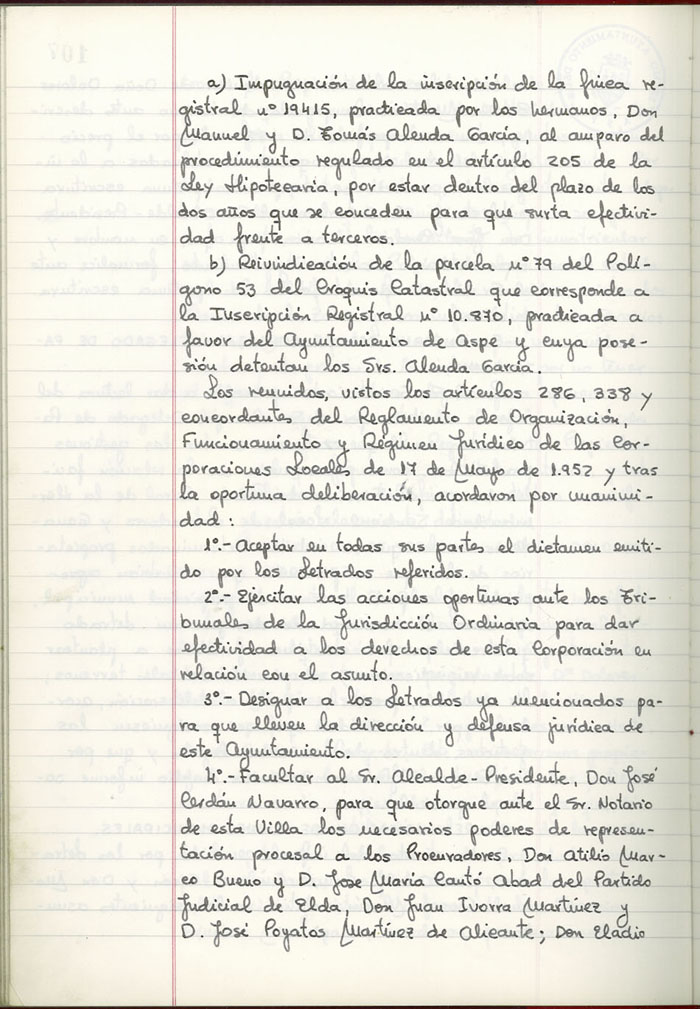 a) Impugnación de la inscripción de la finca re-
gistral nº 19415, practicada por los hermanos, Don
Manuel y D. Tomás Alenda García, al amparo del
procedimiento regulado en el artículo 205 de la
Ley Hipotecaria, por estar dentro del plazo de los
dos años que se conceden para que surta efectivi-
dad frente a terceros.
b) Reivindicación de la parcela nº 79 del Polí-
gono 53 del Croquis Catastral que corresponde a
la Inscripción Registral nº 10.870, practicada a
favor del Ayuntamiento de Aspe y cuya pose-
sión detentan los Srs. Alenda García.
Los reunidos, vistos los artículos 286, 338 y
concordantes del Reglamento de Organización,
Funcionamiento y Régimen Jurídico de las Cor-
poraciones Locales de 17 de Mayo de 1.952 y tras
la oportuna deliberación, acordaron por unanimi-
dad:
1º.- Aceptar en todas sus partes el dictamen emiti-
do por los Letrados referidos.
2º.- Ejercitar las acciones oportunas ante los Tri-
bunales de la Jurisdicción Ordinaria para dar
efectividad a los derechos de esta Corporación en
relación con el asunto.
3º.- Designar a los Letrados ya mencionados pa-
ra que lleven la dirección y defensa jurídica de
este Ayuntamiento.
4º.- Facultar al Sr. Alcalde-Presidente, Don José
Cerdán Navarro, para que otorgue ante el Sr. Notario
de esta Villa los necesarios poderes de represen-
tación procesal a los Procuradores, Don Atilio Mar-
co Bueno y D. Jose María Cantó Abad del Partido
Judicial de Elda, Don Juan Ivorra Martínez y
D. José Poyatos Martínez de Alicante; Don Eladio